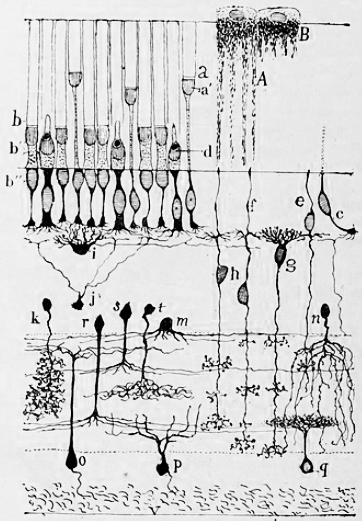 B
A
a
a'
b
b'
d
b"
f
e
c
i
g
h
j
k
r
s
t
m
n
o
p
q
v